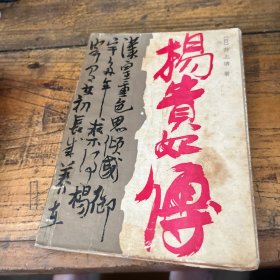 [日]井上靖 著
楊貴妃傳
漢皇重色思傾國御
宇多年求不得楊
家有女初長成養在